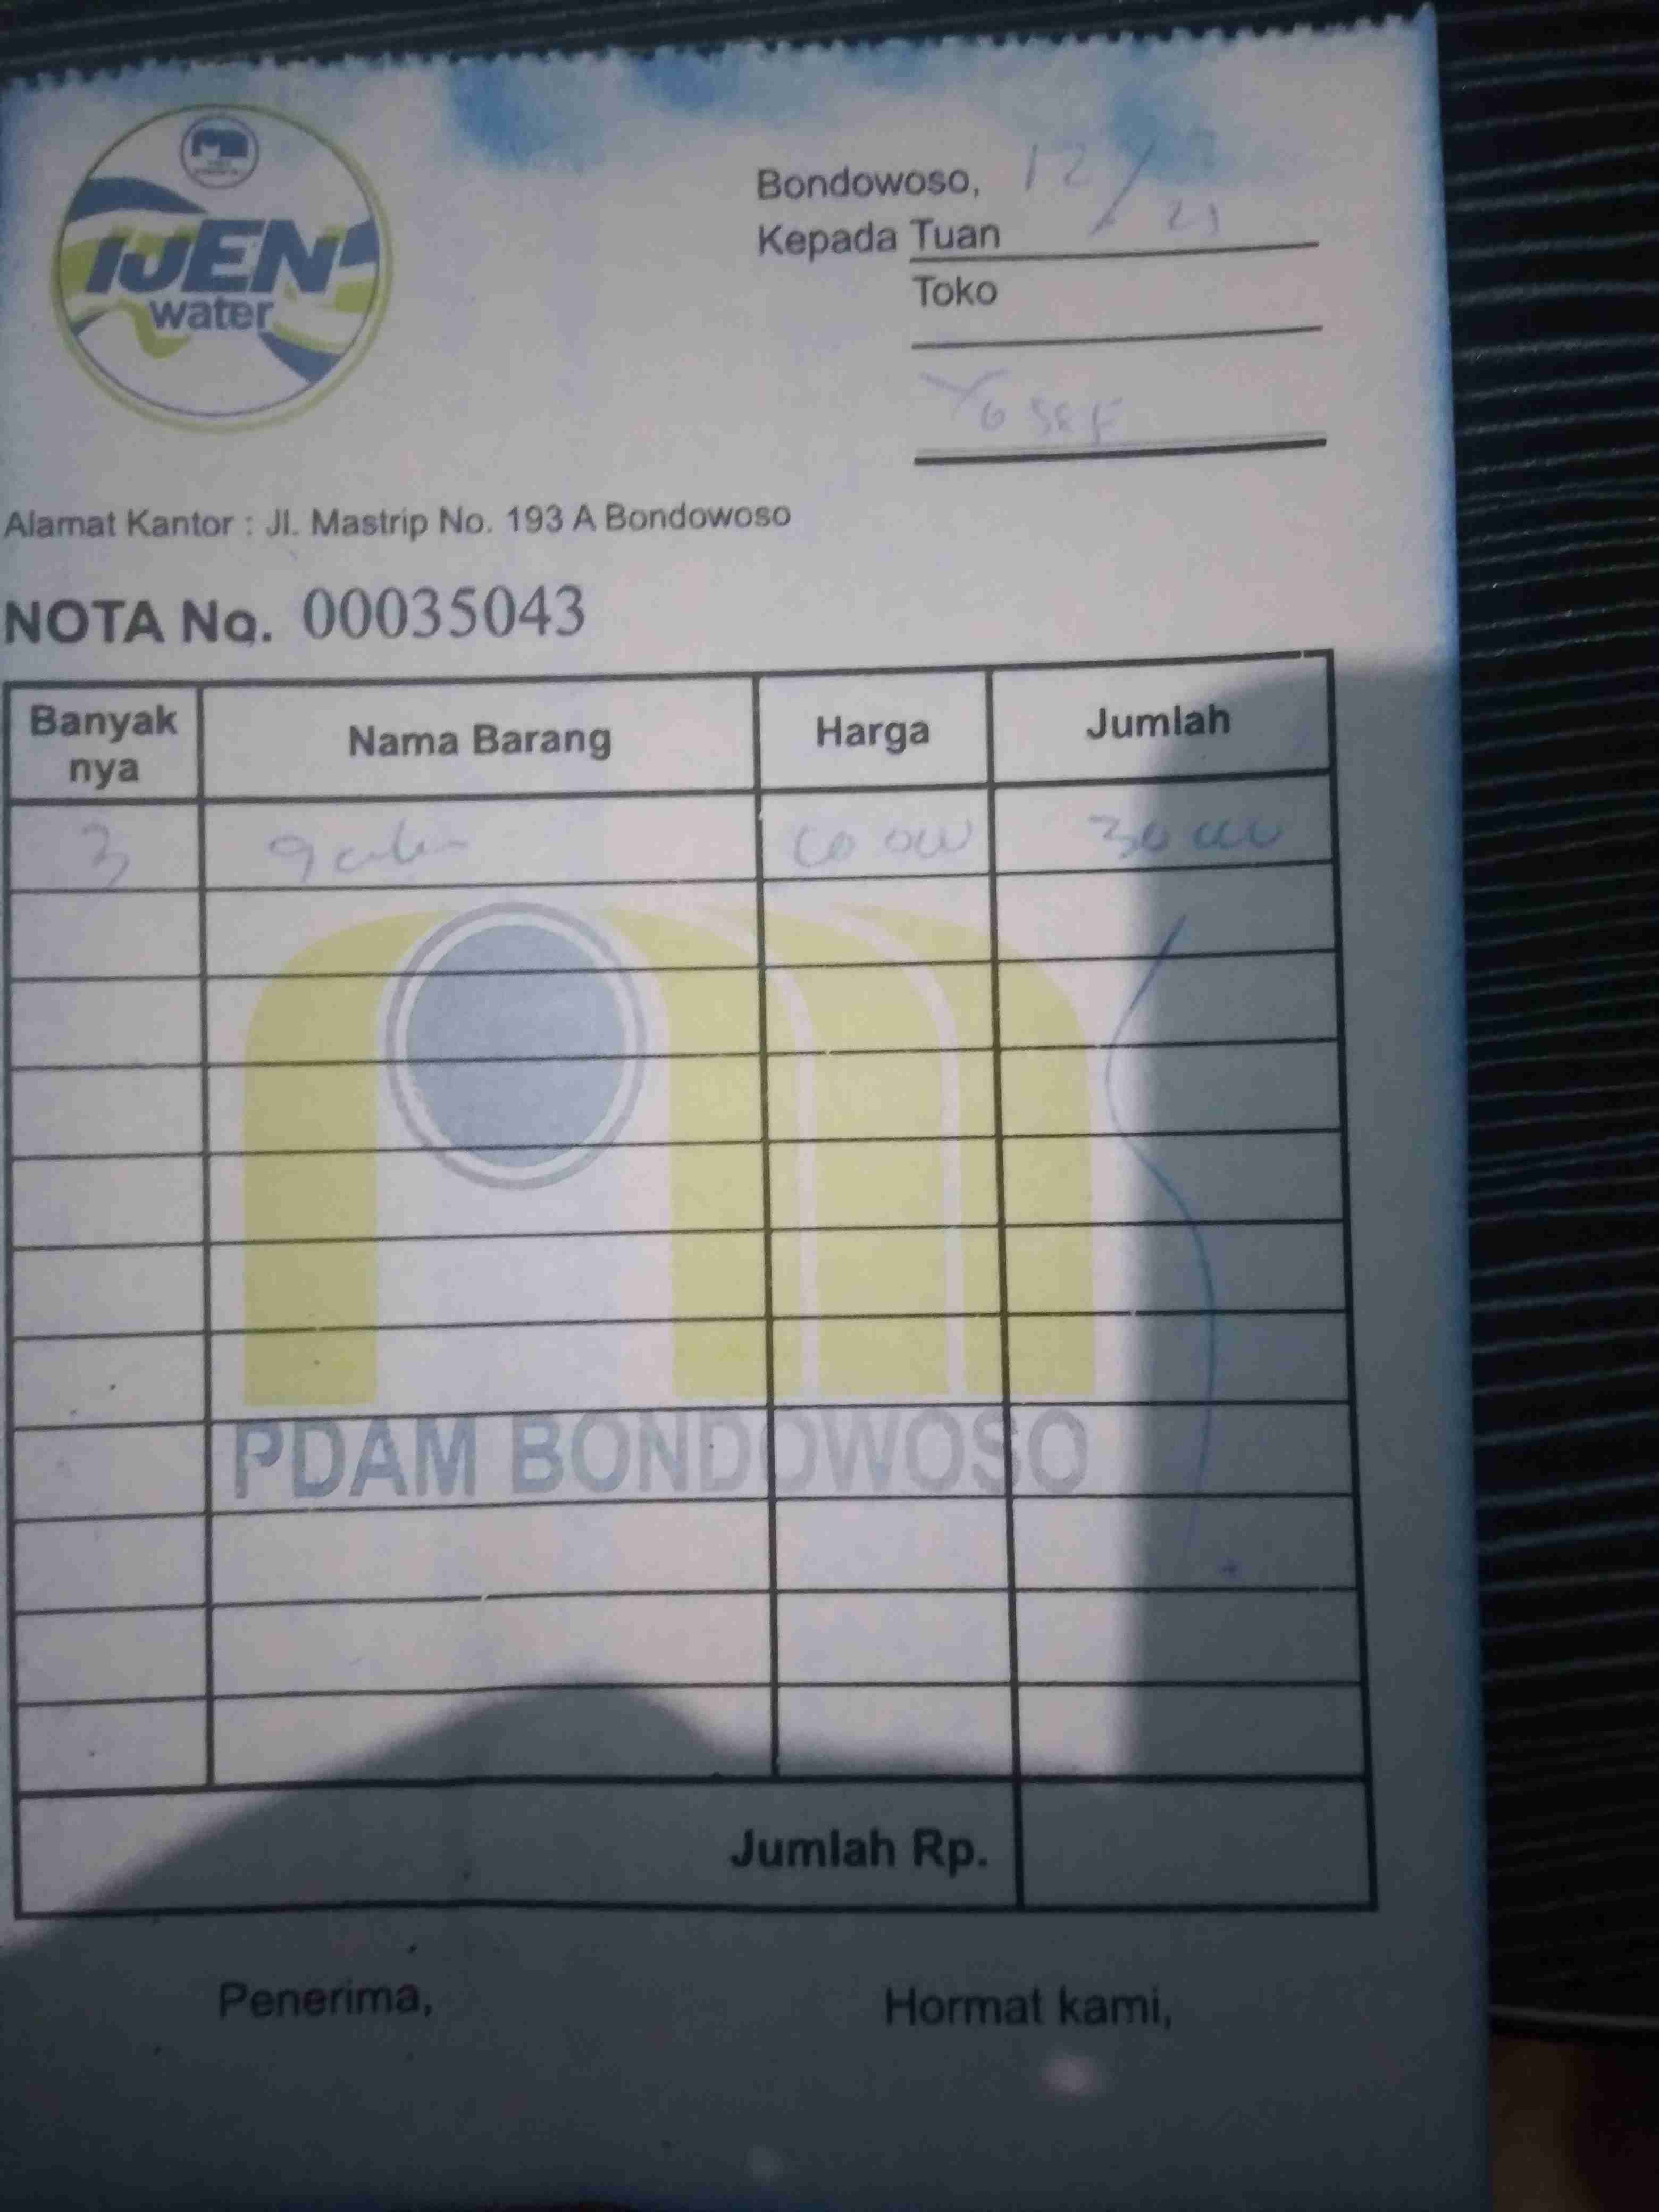 IJEN
water
Bondowoso, 12/
21
Kepada Tuan
Toko
Yosef
Alamat Kantor : Jl. Mastrip No. 193 A Bondowoso
NOTA No. 00035043
Banyak nya Nama Barang Harga Jumlah
3 galon 10 000 30 000
PDAM BONDOWOSO
Jumlah Rp.
Penerima, Hormat kami,